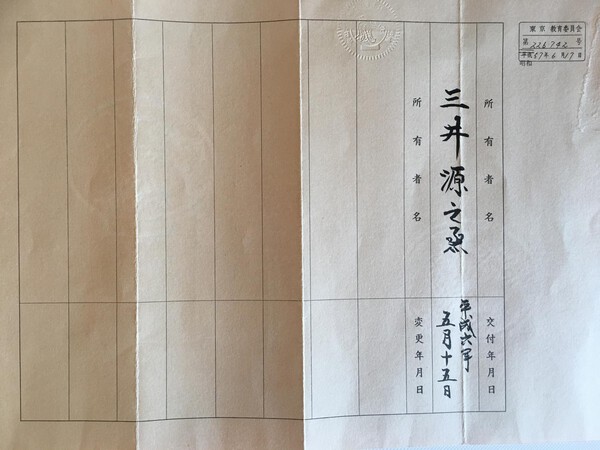 東京 教育委員会
第 226742 号
平成 57年 6月17日
昭和
所有者名
三井源之丞
所有者名
交付年月日
平成六年
五月十五日
変更年月日